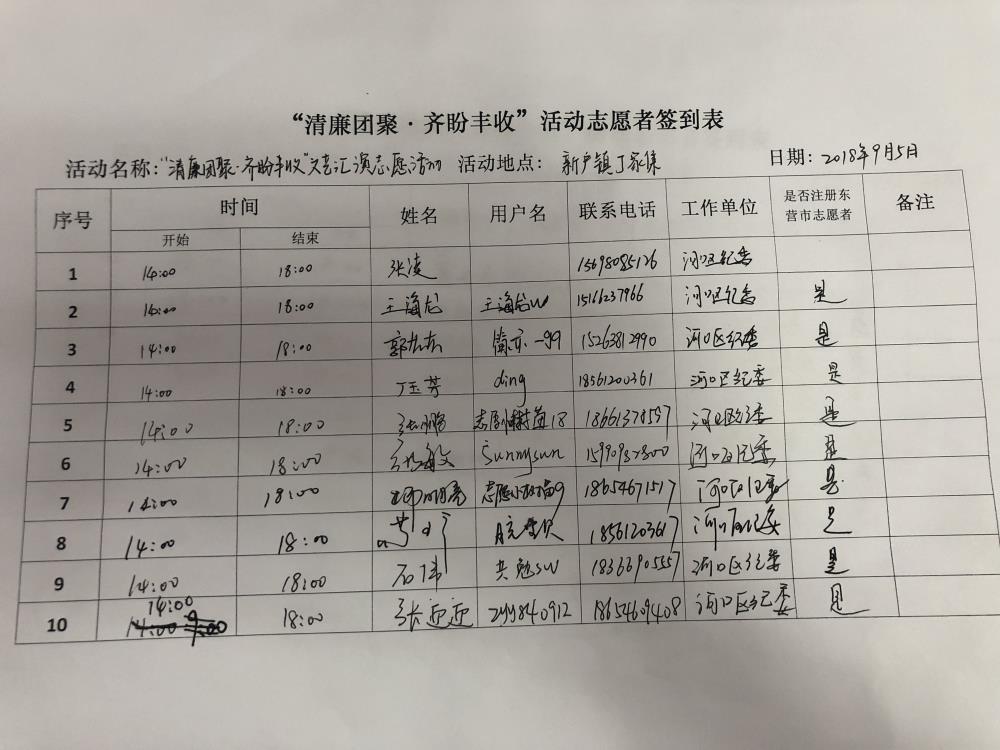 “清廉团聚·齐盼丰收”活动志愿者签到表
活动名称：“清廉团聚·齐盼丰收”文艺汇演志愿活动 活动地点： 新户镇丁家集 日期：2018年9月5日
序号 时间 姓名 用户名 联系电话 工作单位 是否注册东营市志愿者 备注
开始 结束
1 14:00 18:00 张凌 15698085126 河口区纪委
2 14:00 18:00 王海龙 王海龙W 15166237966 河口区纪委 是
3 14:00 18:00 15263812990 河口区纪委 是
4 14:00 18:00 丁玉芳 ding 18561200361 河口区纪委 是
5 14:00 18:00 张鹏 18661378597 河口区纪委 是
6 14:00 18:00 张敏 Sunnysun 15990982800 河口区纪委 是
7 14:00 18:00 18654671517 河口区纪委 是
8 14:00 18:00 18561203617 河口区纪委 是
9 14:00 18:00 石伟 共勉SW 18366905557 河口区纪委 是
14:00
10 14:00 9:00 18:00 张迎迎 zyy840912 18654609408 河口区纪委 是